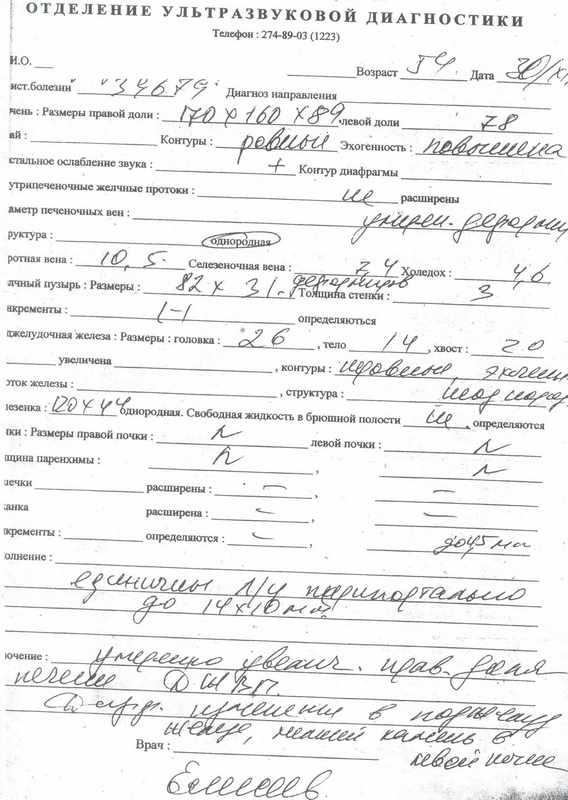 ОТДЕЛЕНИЕ УЛЬТРАЗВУКОВОЙ ДИАГНОСТИКИ
Телефон : 274-89-03 (1223)
И.О.
Возраст 54. Дата 30/XI
ист.болезни 34679 Диагноз направления
чень : Размеры правой доли : 170 х 160 х 89 , левой доли 78
ай : Контуры : ровные Эхогенность : повышена
стальное ослабление звука : + Контур диафрагмы
утрипеченочные желчные протоки : не расширены
аметр печеночных вен :
руктура : однородная
ротная вена : 10,5. Селезеночная вена : 7,4 Холедох : 4,6
лчный пузырь : Размеры : 82 х 31. Толщина стенки : 3
нкременты : (-) определяются
оджелудочная железа : Размеры : головка : 26 , тело 14 , хвост : 20
увеличена , контуры :
оток железы : , структура :
лезенка : 120х44 однородная. Свободная жидкость в брюшной полости не , определяются
чки : Размеры правой почки : N левой почки : N
лщина паренхимы : N , N
шечки расширены : – , –
ханка расширена : – , –
нкременты : определяются : – , до 4,5 мм
полнение :
единичны л/у перипортально
до 14х10 мм
лючение : умеренно увелич. прав. доля
печени ДЖВП.
Дифф. изменения в поджелуд
железе, мелкий камень в
левой почке
Врач :